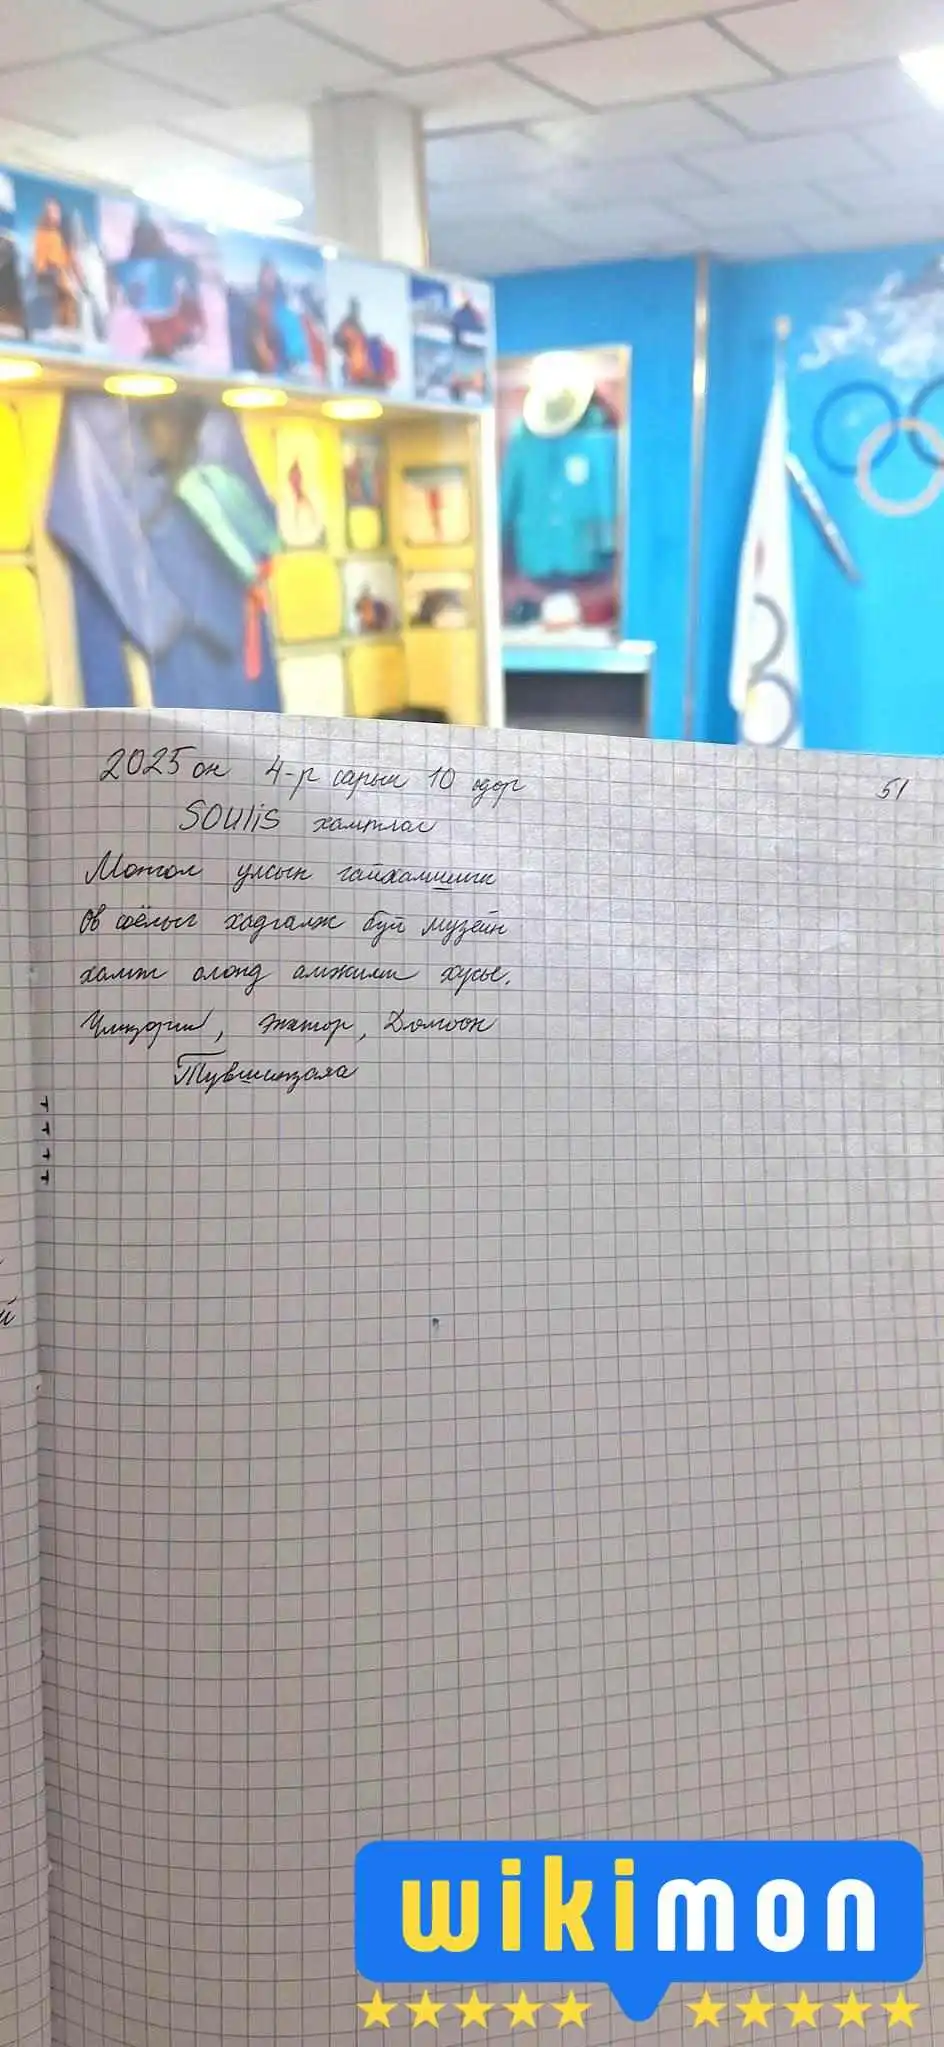 2025 он 4-р сарын 10 одор
51
SOULiS хамтлаг
Монгол улсын гайхамшигт
өв соёлыг хадгалж буй музейн
хамт олонд амжилт хүсье.
Тувшинзаяа
wikimon